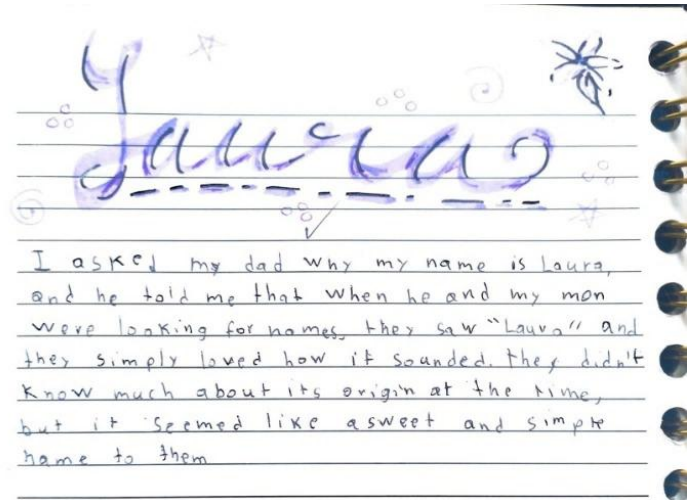 Laura
I asked my dad why my name is Laura,
and he told me that when he and my mon
were looking for names, they saw "Laura" and
they simply loved how it sounded. they didn't
know much about its origin at the time,
but it seemed like asweet and simple
name to them